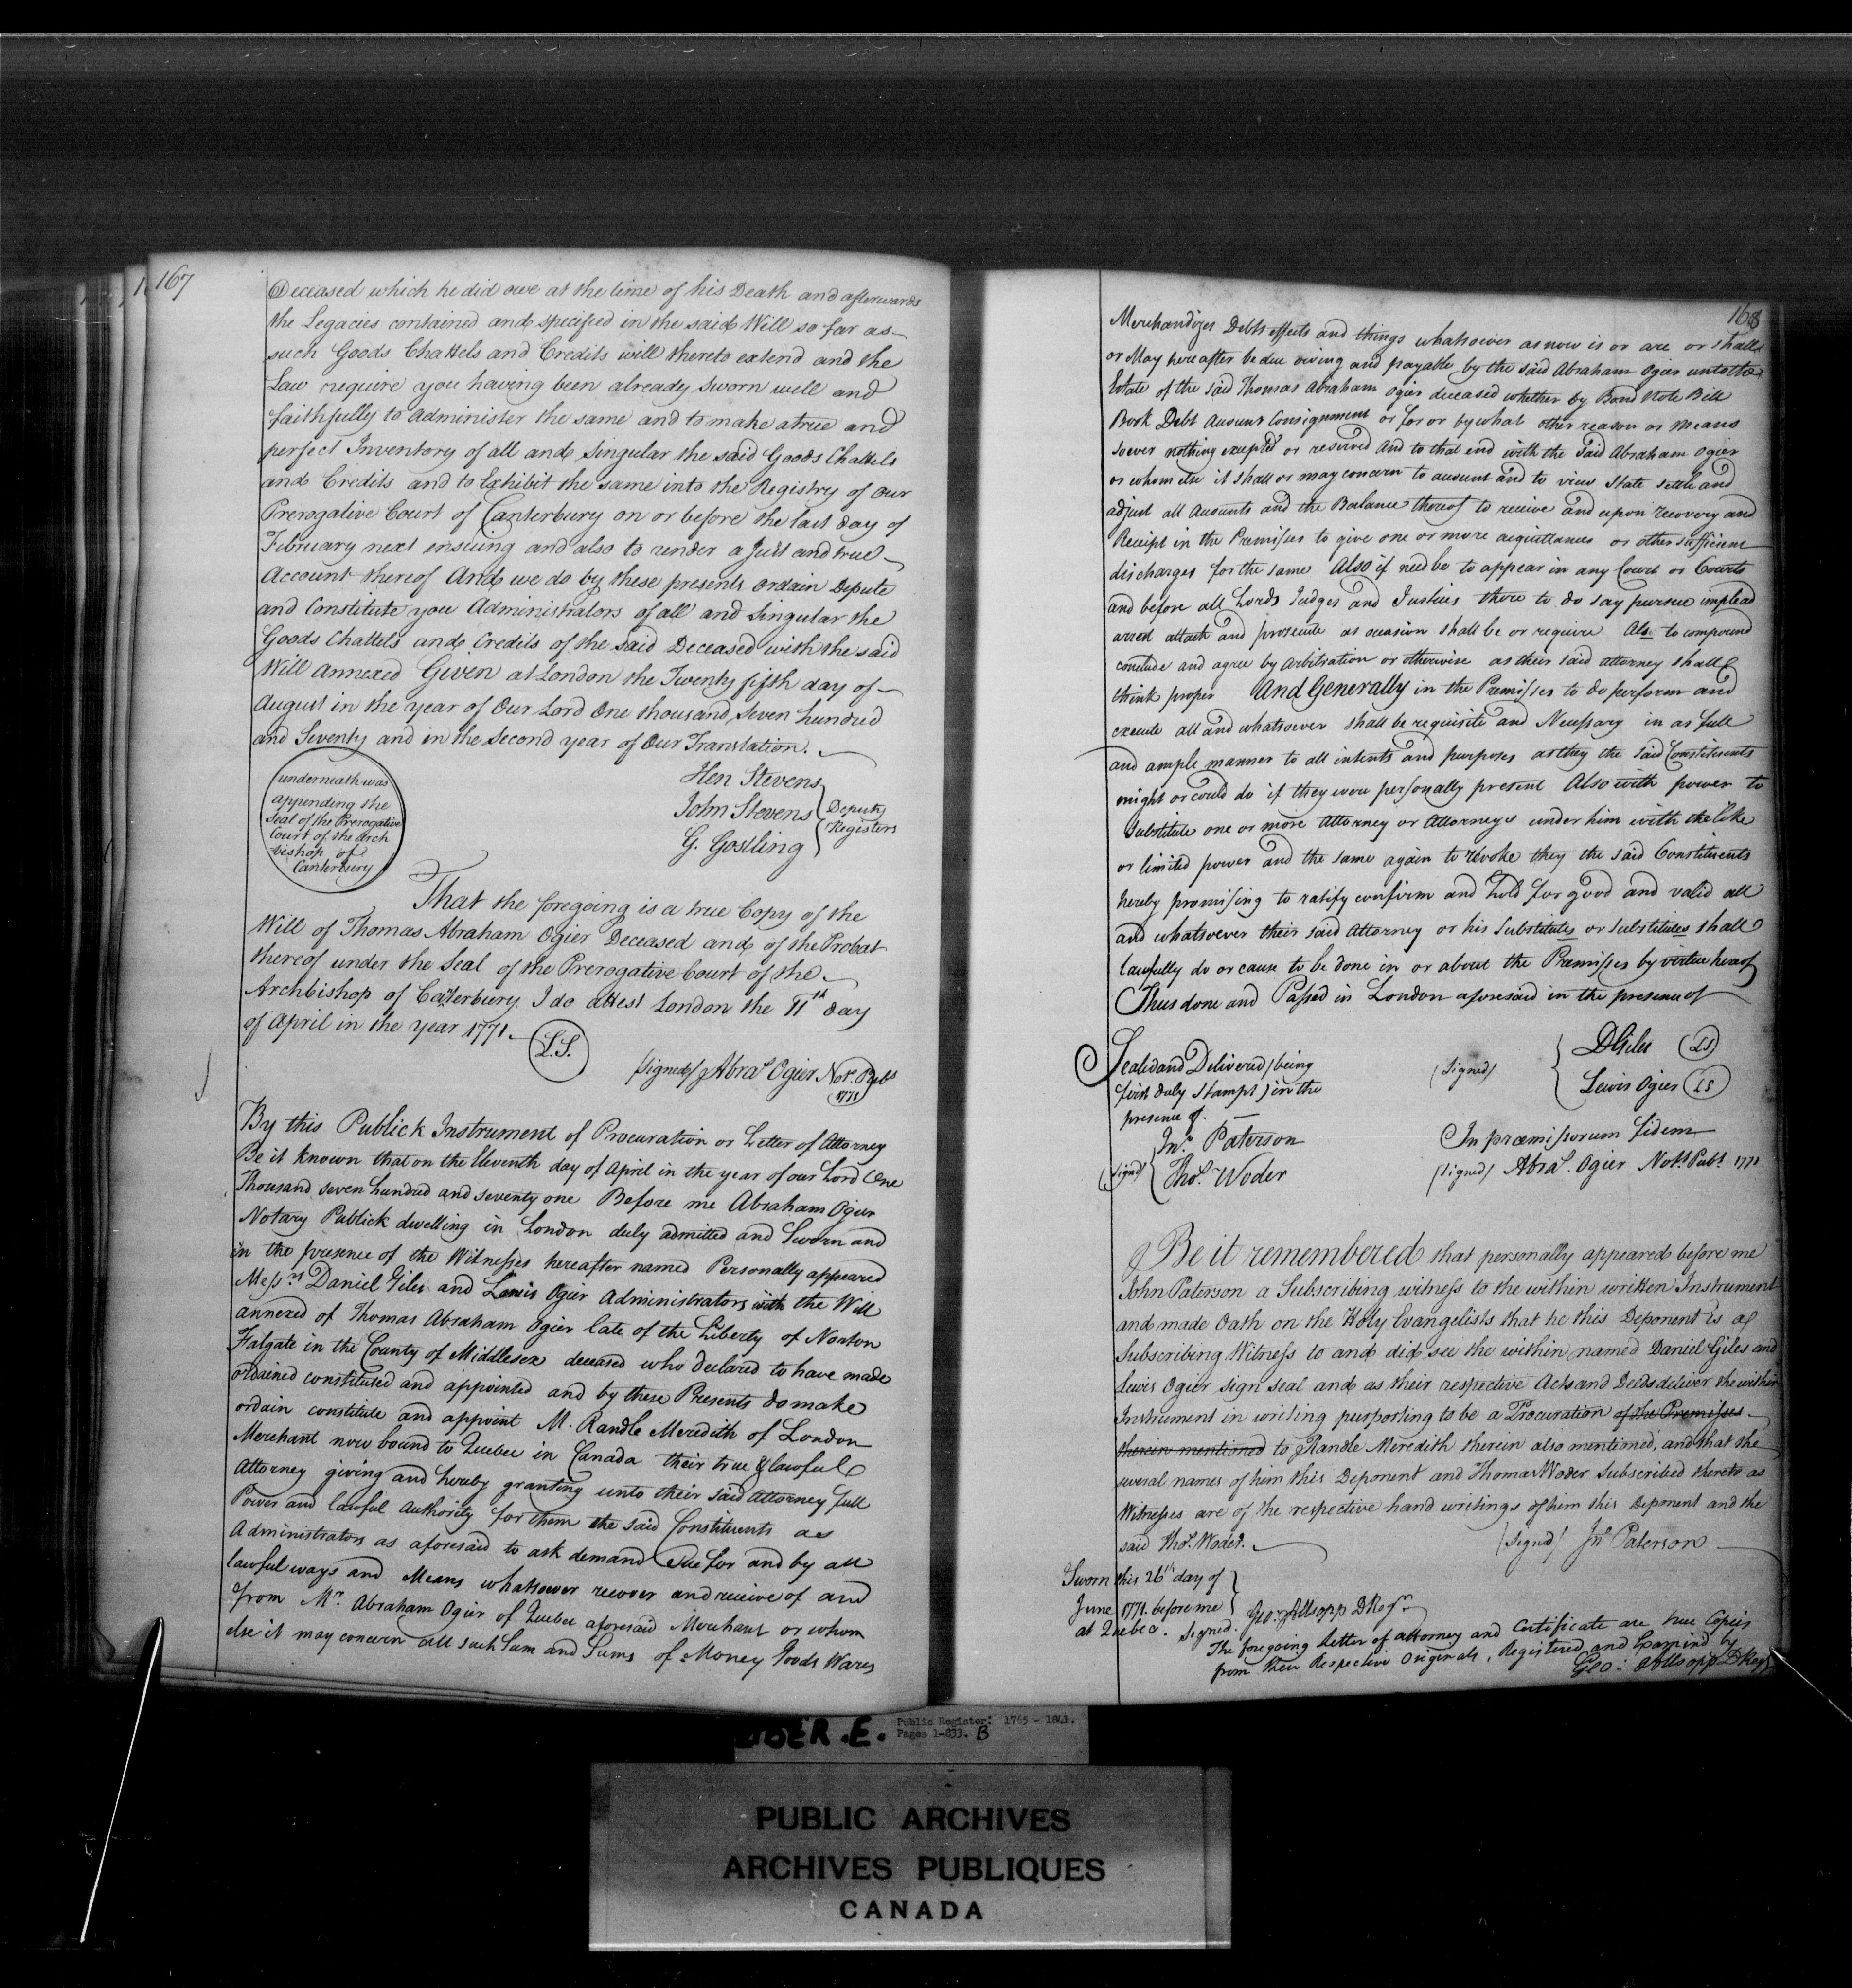 167
Deceased which he did owe at the time of his Death and afterwards
the Legacies contained and specified in the said Will so far as
such Goods Chattels and Credits will thereto extend and the
Law require you having been already sworn well and
faithfully to administer the same and to make a true and
perfect Inventory of all and Singular the said Goods Chattels
and Credits and to Exhibit the same into the Registry of our
Prerogative Court of Canterbury on or before the last day of
February next ensuing and also to render a Just and true
Account thereof And we do by these presents ordain Depute
and Constitute you Administrators of all and Singular the
Goods Chattels and Credits of the said Deceased with the said
Will annexed Given at London the Twenty fifth day of
August in the year of Our Lord One thousand Seven hundred
and Seventy and in the Second year of Our Translation.
underneath was
appending the
Seal of the Prerogative
Court of the Arch
bishop of
Canterbury
Hen Stevens
John Stevens
G. Gostling
Deputy
Registers
That the foregoing is a true Copy of the
Will of Thomas Abraham Ogier Deceased and of the Probat
thereof under the Seal of the Prerogative Court of the
Archbishop of Canterbury I do attest London the 11th day
of April in the year 1771.
L.S.
(signed) Abram Ogier Noty. Pubs
1771
By this Publick Instrument of Procuration or Letter of Attorney
Be it known that on the Eleventh day of April in the year of our Lord One
Thousand seven hundred and seventy one Before me Abraham Ogier
Notary Publick dwelling in London duly admitted and Sworn and
in the presence of the Witnesses hereafter named Personally appeared
Messrs Daniel Giles and Lewis Ogier Administrators with the Will
annexed of Thomas Abraham Ogier late of the Liberty of Norton
Falgate in the County of Middlesex deceased who declared to have made
ordained constituted and appointed and by these Presents do make
ordain constitute and appoint M. Randle Meredith of London
Merchant now bound to Quebec in Canada their true & lawful
Attorney giving and hereby granting unto their said Attorney full
Power and lawful Authority for them the said Constituents as
Administrators as aforesaid to ask demand Sue for and by all
lawful ways and Means whatsoever recover and receive of and
from Mr. Abraham Ogier of Quebec aforesaid Merchant or whom
else it may concern all such Sum and Sums of Money Goods Wares
168
Merchandizes Debts effects and things whatsoever as now is or are or shall
or May hereafter be due owing and payable by the said Abraham Ogier unto the
Estate of the said Thomas Abraham Ogier deceased whether by Bond Note Bill
Book Debt Account Consignment or for or by what other reason or means
soever nothing excepted or reserved And to that end with the said Abraham Ogier
or whom else it shall or may concern to account and to view State settle and
adjust all Accounts and the Balance thereof to receive and upon recovery and
Receipt in the Premisses to give one or more acquittances or other sufficient
discharges for the same Also if need be to appear in any Court or Courts
and before all Lords Judges and Justices there to do say pursue implead
arrest attach and prosecute as occasion shall be or require Also to compound
conclude and agree by arbitration or otherwise as their said attorney shall
think proper And Generally in the Premisses to do perform and
execute all and whatsoever shall be requisite and Necessary in as full
and ample manner to all intents and purposes as they the said Constituents
might or could do if they were personally present Also with power to
substitute one or more Attorney or Attorneys under him with the like
or limited power and the same again to revoke they the said Constituents
hereby promising to ratify confirm and hold for good and valid all
and whatsoever their said Attorney or his Substitutes or substitutes shall
lawfully do or cause to be done in or about the Premisses by virtue hereof
Thus done and Passed in London aforesaid in the presence of
Sealed and Delivered (being
first duly stampt) in the
presence of.
(signed)
DGiles LS
Lewis Ogier LS
(signd)
Jno. Paterson
Thos. Woder
In præmissorum fidem
(signed) Abram. Ogier Noty. Pubs. 1771
Be it remembered that personally appeared before me
John Paterson a Subscribing witness to the within written Instrument
and made Oath on the Holy Evangelists that he this Deponent is a
Subscribing Witness to and did see the within named Daniel Giles and
Lewis Ogier sign seal and as their respective Acts and Deeds deliver the within
Instrument in writing purporting to be a Procuration of the Premisses
therein mentioned to Randle Meredith therein also mentioned, and that the
several names of him this Deponent and Thomas Woder Subscribed thereto as
Witnesses are of the respective hand writings of him this Deponent and the
said Thos. Woder.
(signed) Jno Paterson
Sworn this 26th day of
June 1771. before me
at Quebec. signed: Geo: Allsopp DRegr
The foregoing Letter of attorney and Certificate are true Copies
from their Respective Originals, Registered and Examind by
Geo: Allsopp DRegr
LIBER.E.
Public Register: 1765 - 1841.
Pages 1-833. B
PUBLIC ARCHIVES
ARCHIVES PUBLIQUES
CANADA